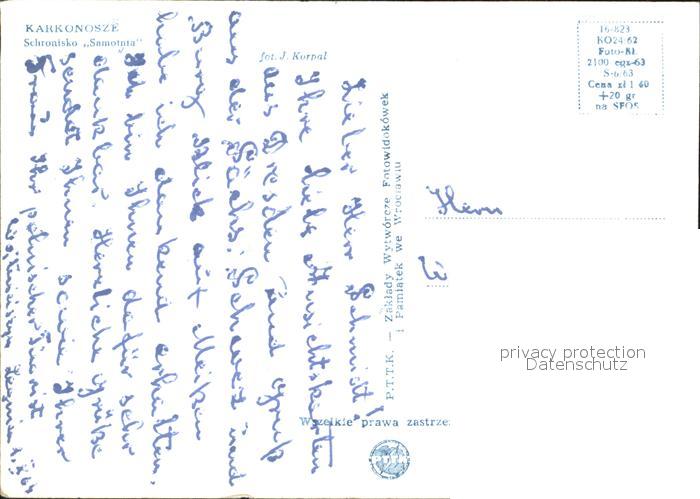 KARKONOSZE
Schronisko „Samotnia"
fot. J. Korpal
16-823
KO24/62
Foto-Kł.
2100 egz-63
S-6/63
Cena zł 1 60
+20 gr
na SFOS
Lieber Herr Schmidt!
Ihre liebe Ansichtskarten
aus Dresden und gruß
aus der Sächs. Schweiz und
"Burg Blick auf Meißen
habe ich dankend erhalten.
Ich bin Ihnen dafür sehr
dankbar. Herzliche Grüße
sendet Ihnen sowie Ihrer
Frau Ihr polnischer Tourist
Legnica
P.T.T.K. — Zakłady Wytwórcze Fotowidokówek
i Pamiątek we Wrocławiu
Wszelkie prawa zastrze
PTTK
Herrn
privacy protection
Datenschutz